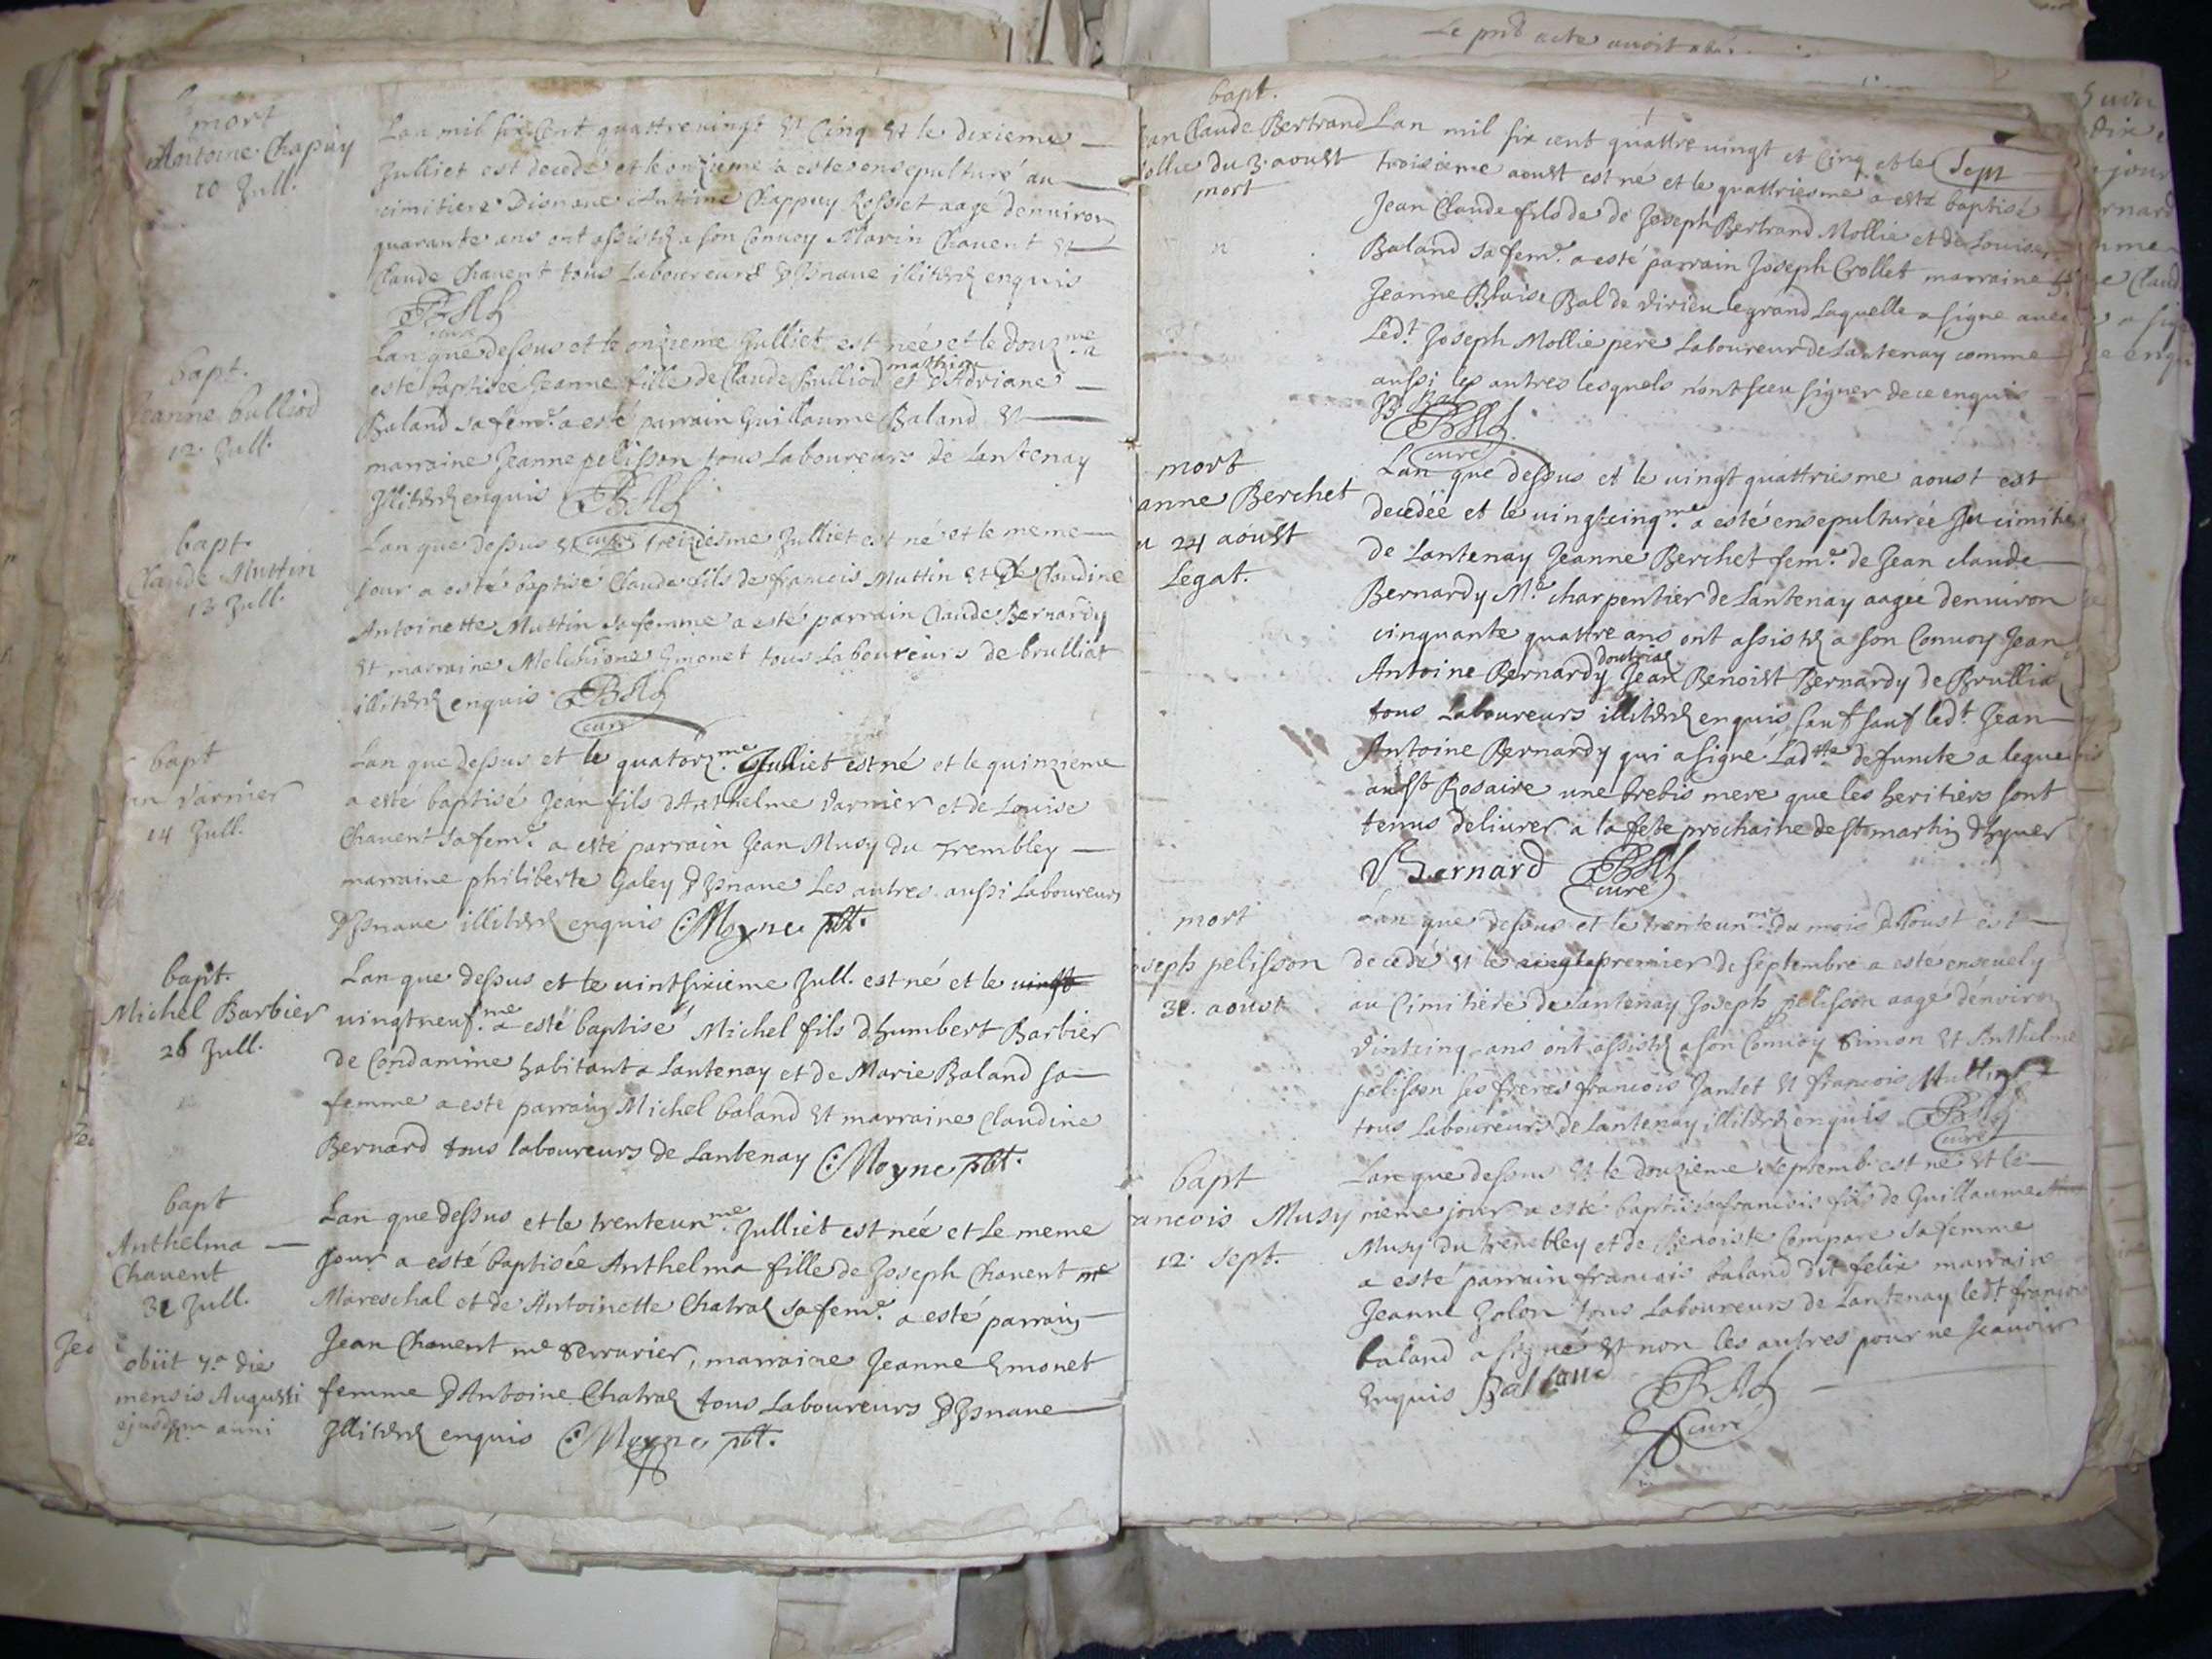 Le pnt acte auoit esté
mort
Antoine Chapuy
10 Jull.
Lan mil six Cent quattreuingt et Cinq et le dixieme
Julliet est decedé et le onzieme a esté ensepulturé au
cimitiere Disnaue Antoine Chappuy Rosset aagé denuiron
quarante ans ont assistez a son Conuoy Marin Chauent et
Claude Chauent tous Laboureurs d'Isnaue illiterez enquis
curé
bapt.
Jeanne bulliod
12. Jull.
Lan que dessus et le onzieme Julliet est née et le douz.me a
esté baptisée Jeanne fille de Claude Bulliod mathieu et d'Adriane
Baland sa fem.e a esté parrain Guillaume Baland et
marraine Jeanne pelisson tous Laboureurs de Lantenay
Illiterez enquis
curé
bapt.
Claude Muttin
13 Jull.
Lan que dessus et le treiziesme Julliet est né et le meme
Jour a esté baptisé Claude fils de francois Muttin et de Claudine
Antoinette Muttin sa femme a esté parrain Claude Bernardy
et marraine Melchione Emonet tous Laboureurs de brulliat
illiterez enquis
curé
bapt
Varnier
14 Jull.
Lan que dessus et le quatorz.me Julliet est né et le quinzieme
a esté baptisé Jean fils d'Anthelme Varnier et de Louise
Chauent sa fem.e a esté parrain Jean Musy du Trembley
marraine philiberte Galey d'Isnaue Les autres aussi Laboureurs
d'Isnaue illiterez enquis C: Moyne pbt.
bapt.
Michel Barbier
26 Jull.
Lan que dessus et le uintsixieme Jull. est né et le uingt
uingtneuf.me a esté baptisé Michel fils d'humbert Barbier
de Condamine habitant a Lantenay et de Marie Baland sa
femme a esté parrain Michel baland et marraine Claudine
Bernard tous laboureurs de Lantenay C: Moyne pbt.
bapt
Anthelma
Chauent
31 Jull.
obiit 7.a die
mensis Augusti
ejusdem anni
Lan que dessus et le trenteun.me Julliet est née et Le meme
Jour a esté baptisée Anthelma fille de Joseph Chauent me
Mareschal et de Antoinette Chatraz sa fem.e a esté parrain
Jean Chauent me serrurier, marraine Jeanne Emonet
femme d'Antoine Chatraz tous Laboureurs d'Isnaue
Illiterez enquis C: Moyne pbt.
bapt.
Jean Claude Bertrand
Mollie du 3. aoust
mort
Lan mil six cent quattre uingt et Cinq et le Sept
troisieme aoust est né et le quattriesme a esté baptisé
Jean Claude fils de de Joseph Bertrand Mollie et de Louise
Baland sa fem.e a esté parrain Joseph Crollet marraine
Jeanne Blaise Bal de Virieu legrand Laquelle a signe auec
Led.t Joseph Mollie pere Laboureur de Lantenay comme
aussi les autres lesquels n'ont sceu signer de ce enquis
B Bal
curé
mort
anne Berchet
u 24 aoust
Legat.
Lan que dessus et le uingt quattriesme aoust est
decedée et le uingtcinq.me a esté ensepulturée au cimitie
de Lantenay Jeanne Berchet fem.e de Jean claude
Bernardy M.e charpentier de Lantenay aagée denuiron
cinquante quattre ans ont assistez a son Conuoy Jean
Antoine Bernardy Jean Benoist Bernardy de Brullia
tous Laboureurs illiterez enquis sauf sauf led.t Jean
Antoine Bernardy qui a signé Ladtte defuncte a legue
au st Rosaire une brebis mere que les heritiers sont
tenus deliurer a la feste prochaine de st martin dhyuer
Bernard
curé
mort
oseph pelisson
31. aoust
Lan que dessus et le trenteun.me du mois d'Aoust est
decedé et le premier de septembre a esté enseuely
au Cimitiere de Lantenay Joseph pelisson aagé denviron
vintcinq ans ont assistez a son Conuoy Simon et Anthelme
pelisson ses freres francois Jantet et francois Muttin
tous Laboureurs de Lantenay illiterez enquis
curé
bapt
ancois Musy
12. sept.
Lan que dessus et le douzieme septemb. est né et le
meme jour a esté baptisé francois fils de Guillaume
Musy du trembley et de Benoiste Compare sa femme
a esté parrain francois baland dit felix marraine
Jeanne Jolon tous Laboureurs de Lantenay led.t francois
baland a signé et non les autres pour ne scauoir
Enquis Balland
curé